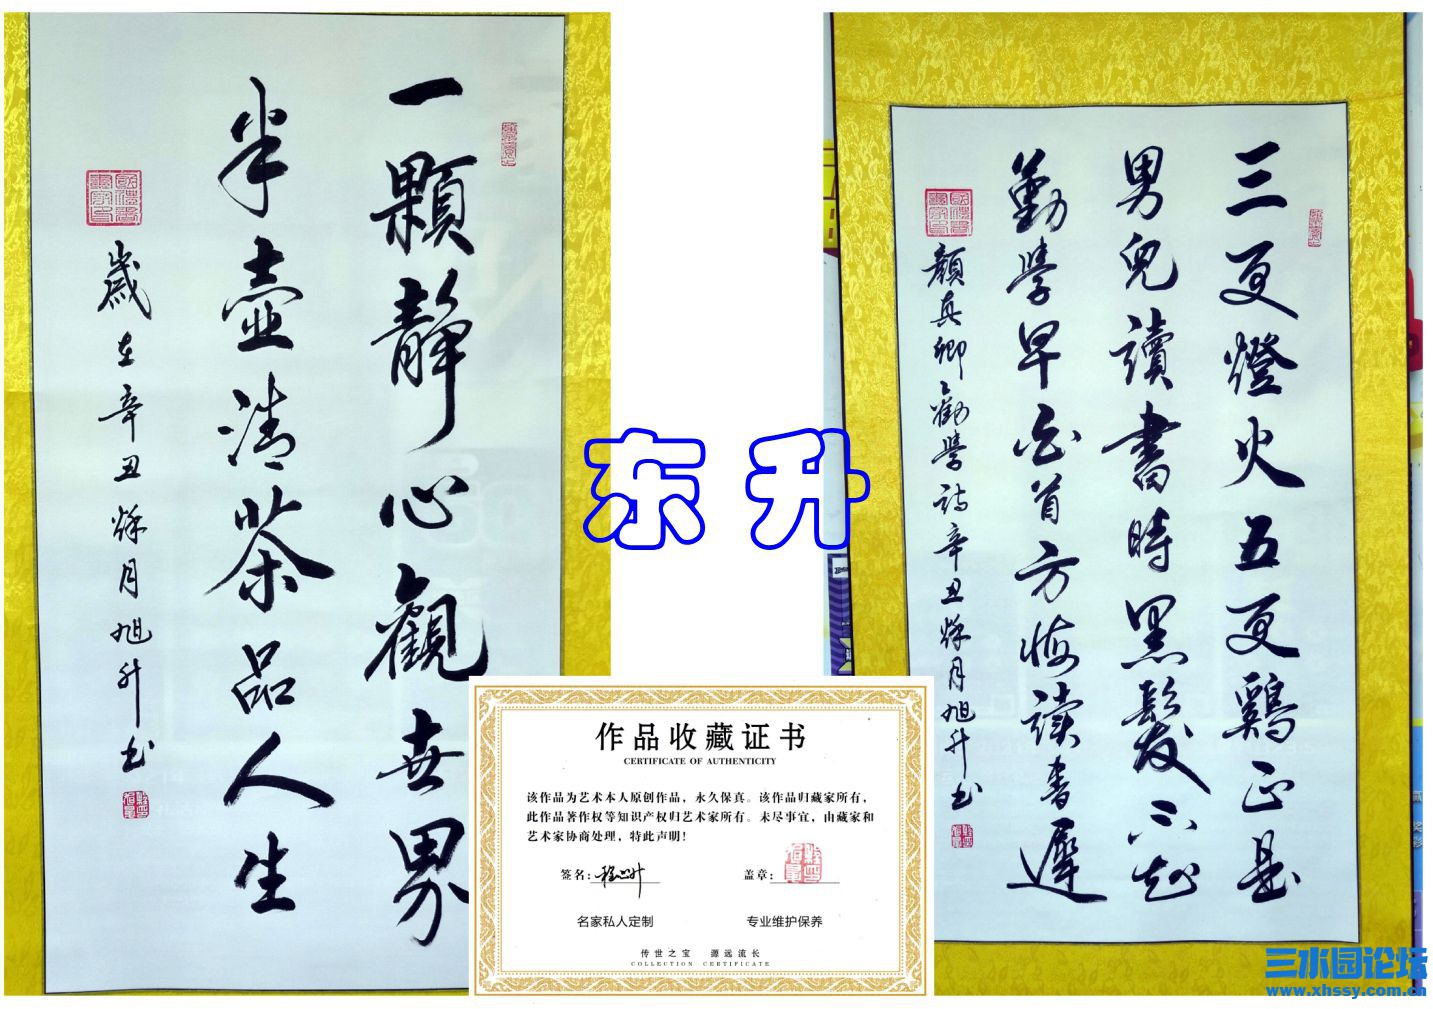 一顆靜心觀世界
半壺清茶品人生
歲在辛丑月旭升书
东升
三更燈火五更鷄正是
男兒讀書時黑髮不知
勤學早白首方悔讀書遲
顏真卿勸學詩辛丑月旭升书
作品收藏证书
CERTIFICATE OF AUTHENTICITY
该作品为艺术本人原创作品，永久保真。该作品归藏家所有，
此作品著作权等知识产权归艺术家所有。未尽事宜，由藏家和
艺术家协商处理，特此声明！
签名： 盖章：
名家私人定制 专业维护保养
传世之宝 源远流长
COLLECTION CERTIFICATE
三水园论坛
www.xhssy.com.cn